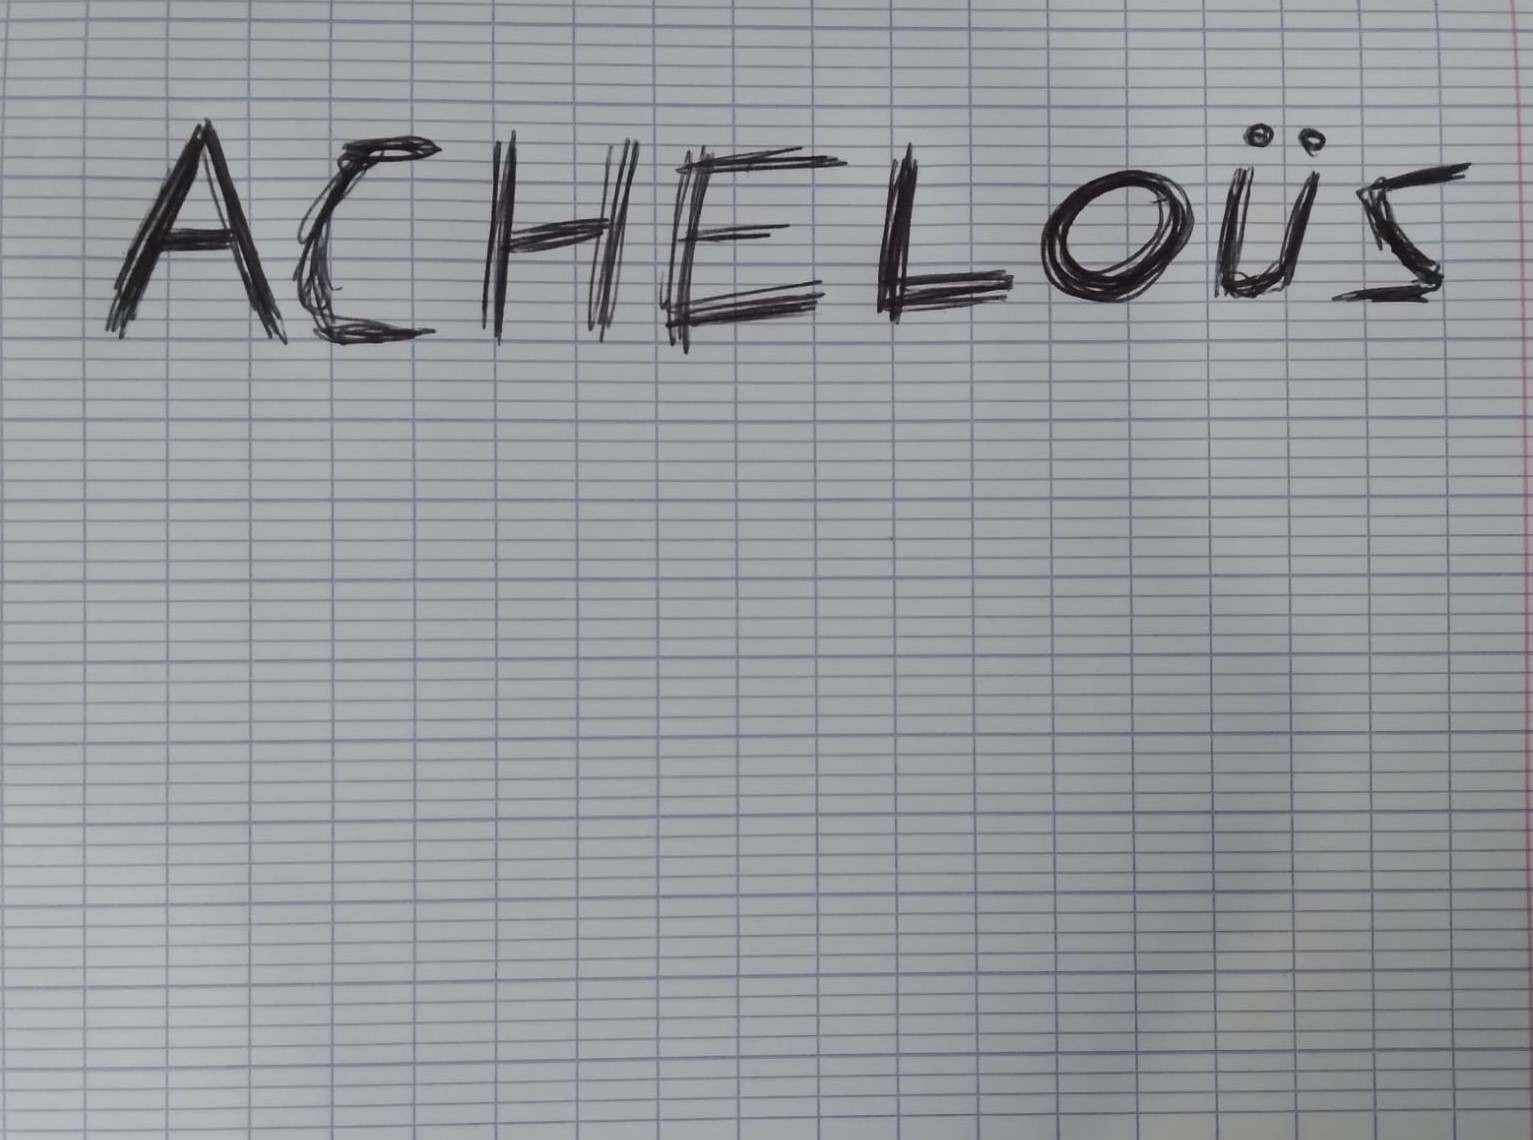 ACHELOÜS